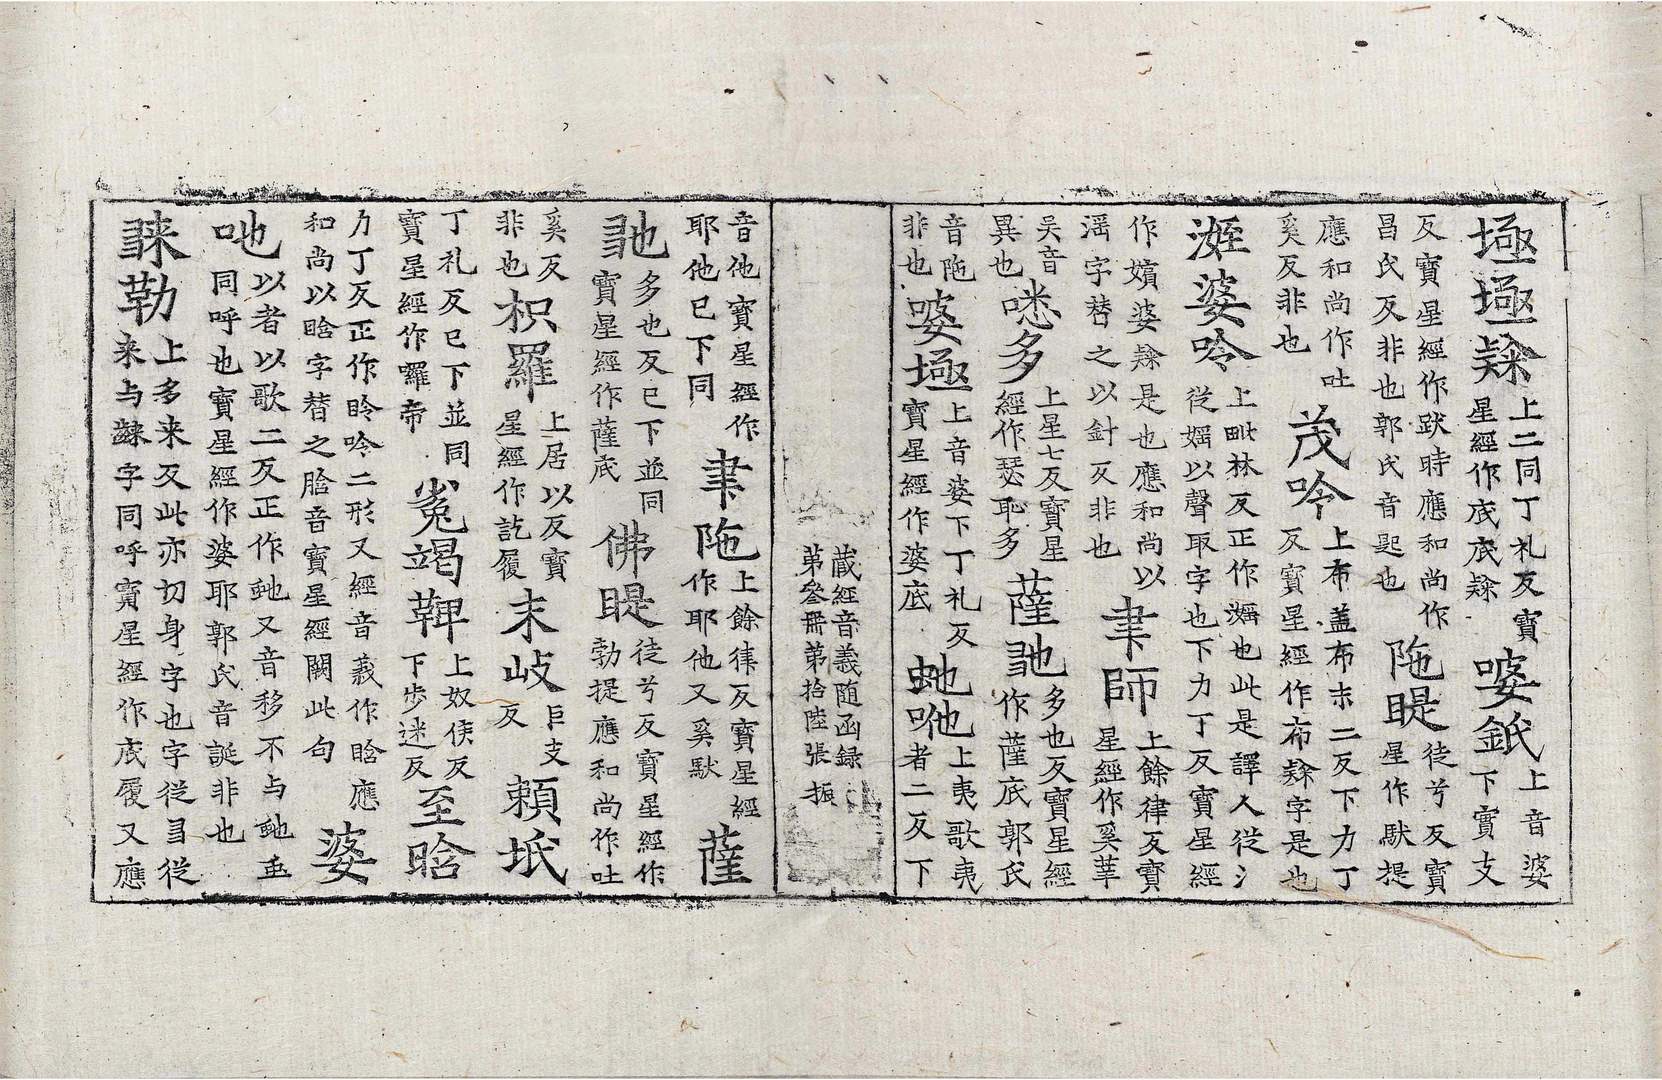 埡埡㔟上二同丁礼反寳星經作底底㔟婆䤠上音婆下實支
反寳星經作䟦時應和尚作昌氏反非也郭氏音匙也陁睼徒兮反寳星作䭾提
應和尚作吐奚反非也茂吟上布盖布末二反下力丁反寳星經作布㔟字是也
婆吟上毗林反正作也此是譯人從氵從婬以聲取字也下力丁反寳星經
作嬪婆㔟是也應和尚以婬字替之以針反非也聿師上餘律反寳星經作奚葦
吴音異也㗭多上星七反寳星經作瑟耻多薩多也反寳星經作薩底郭氏
音陁非也婆上音婆下丁礼反寳星經作婆底虵咃上夷歌夷者二反下
藏經音義随函録
第叅冊第拾陸張 振
音他寳星經作耶他巳下同聿陁上餘律反寳星經作耶他又奚䭾薩
多也反巳下並同寳星經作薩底佛睼徒兮反寳星經作勃提應和尚作吐
奚反非也枳羅上居以反寳星經作訖履末岐巨支反頼坁
丁礼反巳下並同寳星經作囉帝㝹竭鞞上奴侯反下步迷反至晗
力丁反正作昤吟二形又經音義作晗應和尚以晗字替之晗音寳星經闕此句婆
吔以者以歌二反正作虵又音移不与虵同呼也寳星經作婆耶郭氏音誕非也
勒上多来反此亦切身字也字從多從来与㔟字同呼寳星經作底履又應